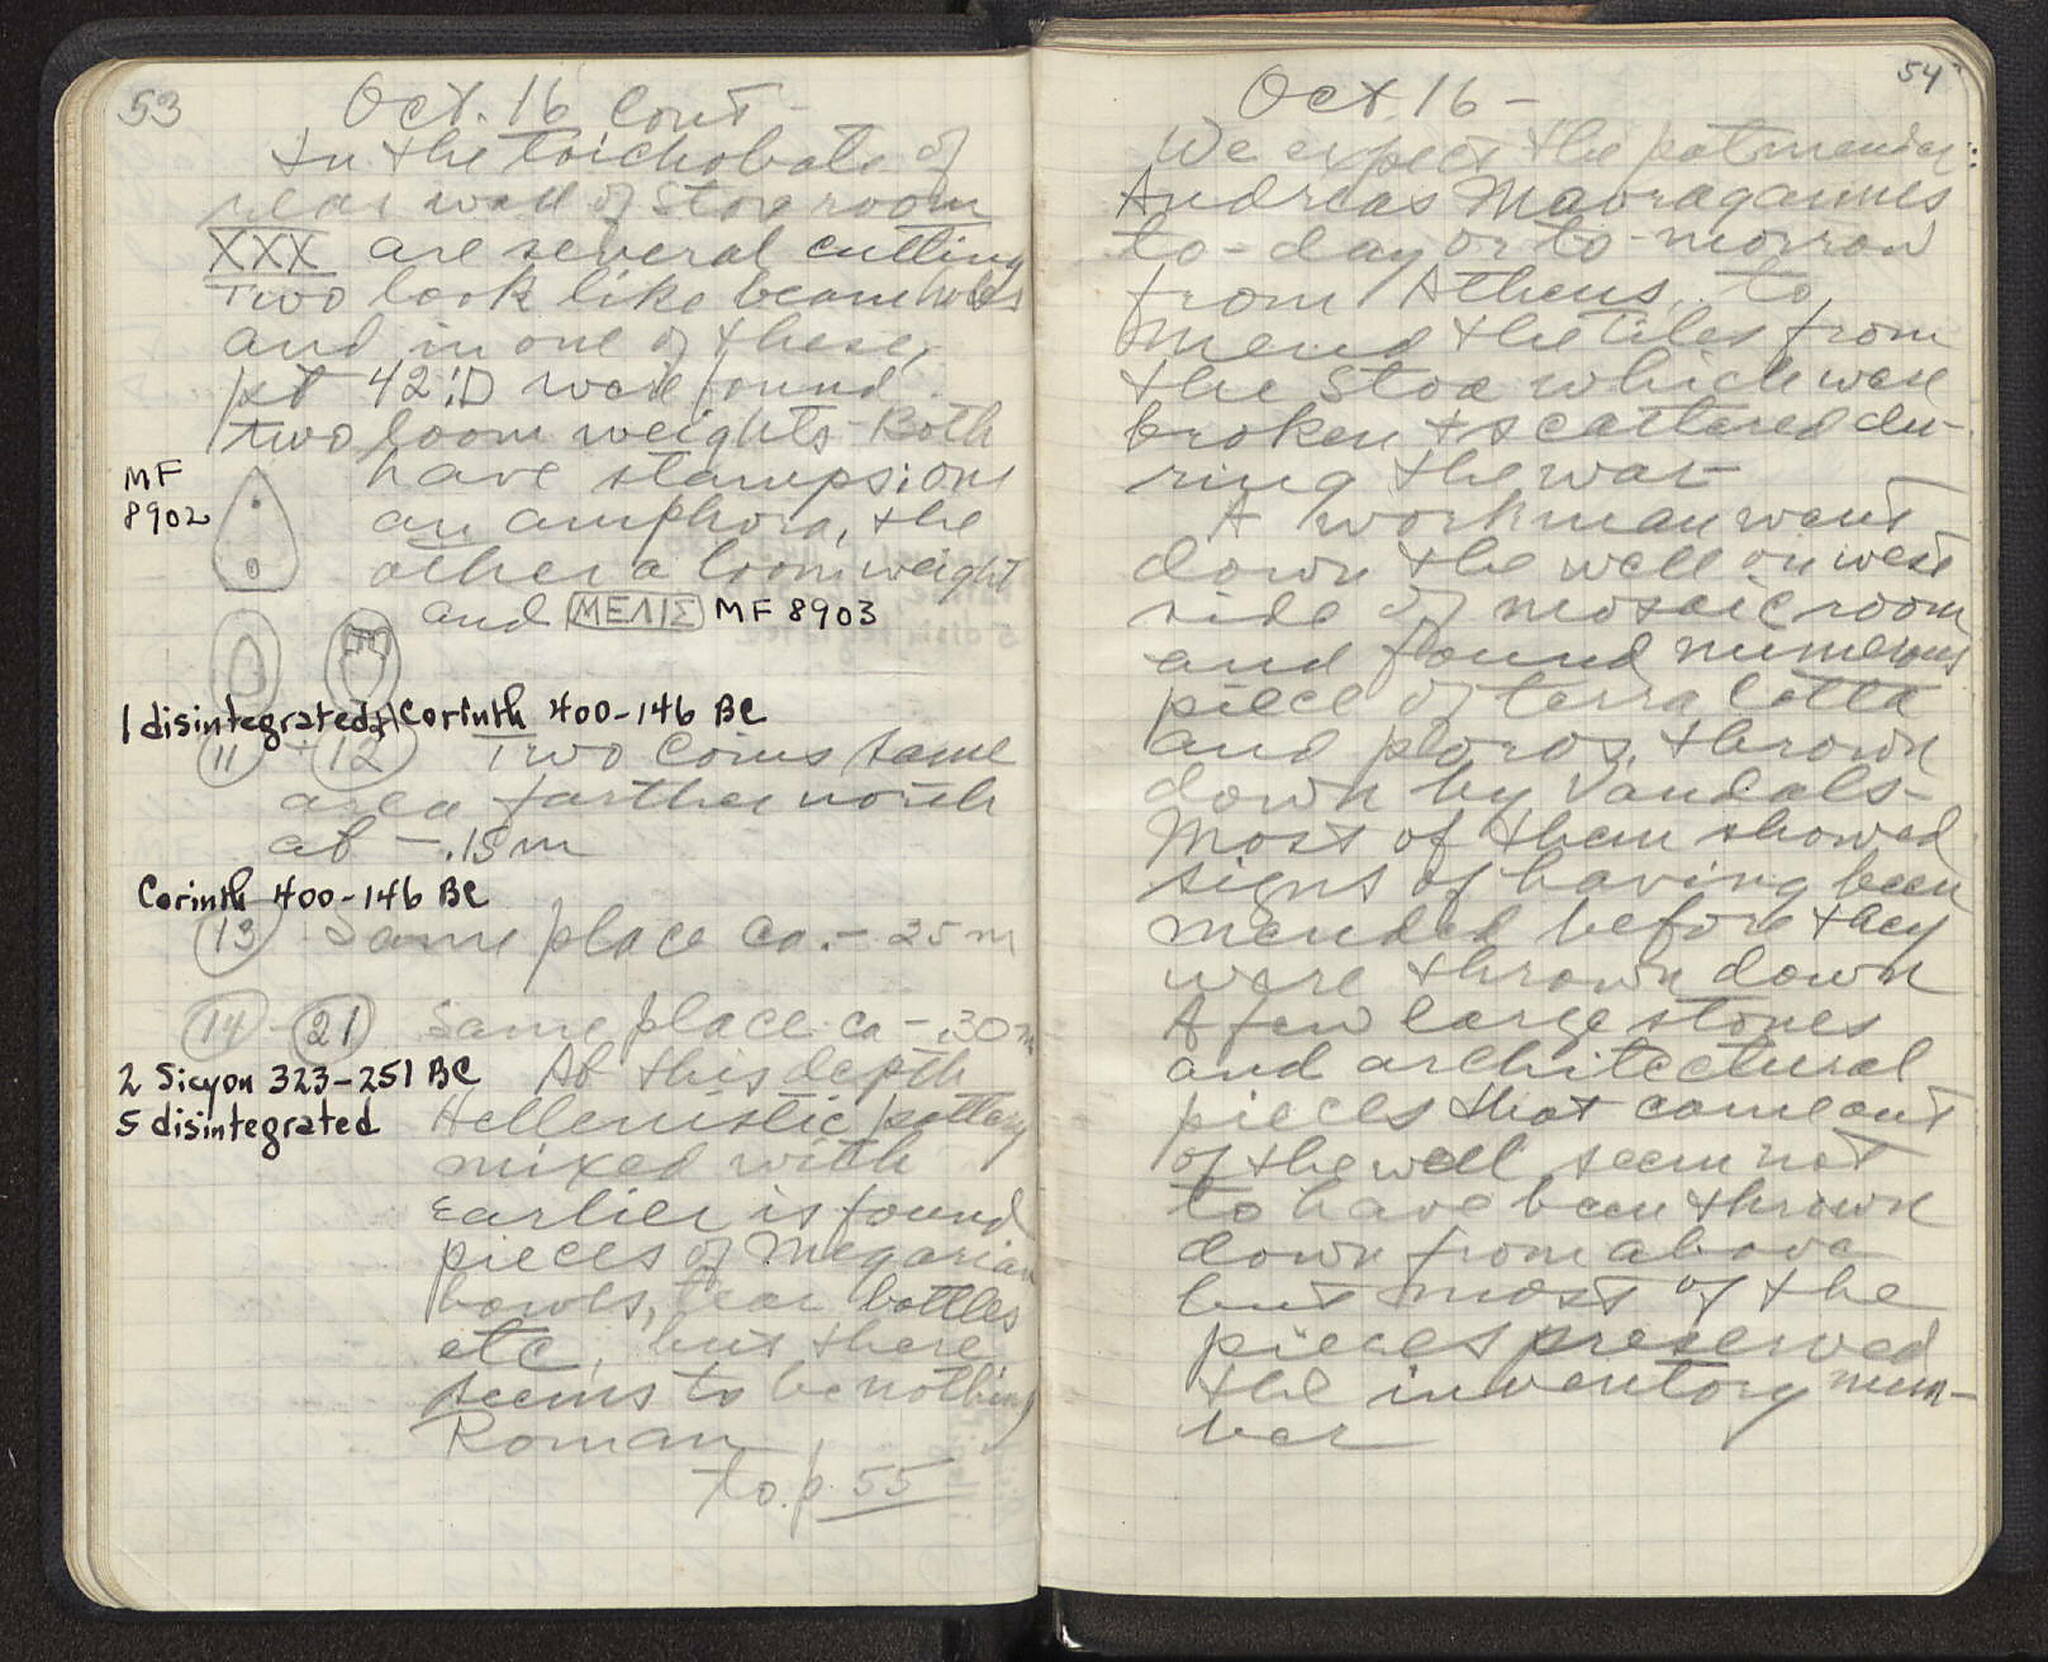 53
Oct. 16 Cont -
In the toichobate of
rear wall of Stoa room
XXX are several cutting
Two look like beam holes
and in one of these,
42:D were found
two loom weights - Both
MF
8902
have stamps: one
an amphora, the
other a loom weight
and ΜΕΛΙΣ MF 8903
1 disintegrated +1 Corinth 400-146 BC
11 + 12 Two coins same
area farther north
at - .15 m
Corinth 400-146 BC
13 Same place ca. - 25 m
14 - 21 Same place ca - .30 m
2 Sicyon 323-251 BC
5 disintegrated
At this depth
Hellenistic pottery
mixed with
earlier is found
pieces of Megarian
bowls, tear bottles
etc, but there
seems to be nothing
Roman
to p. 55
54
Oct. 16 -
We expect the potmender:
Andreas Mavragannes
to-day or to-morrow
from Athens, to
mend the tiles from
the Stoa which were
broken & scattered du-
ring the war
A workman went
down the well on west
side of mosaic room
and found numerous
piece of terra cotta
and poros, thrown
down by Vandals -
Most of them showed
signs of having been
mended before they
were thrown down
A few large stones
and architectural
pieces that came out
of the well seem not
to have been thrown
down from above
but most of the
pieces preserved
the inventory num-
ber